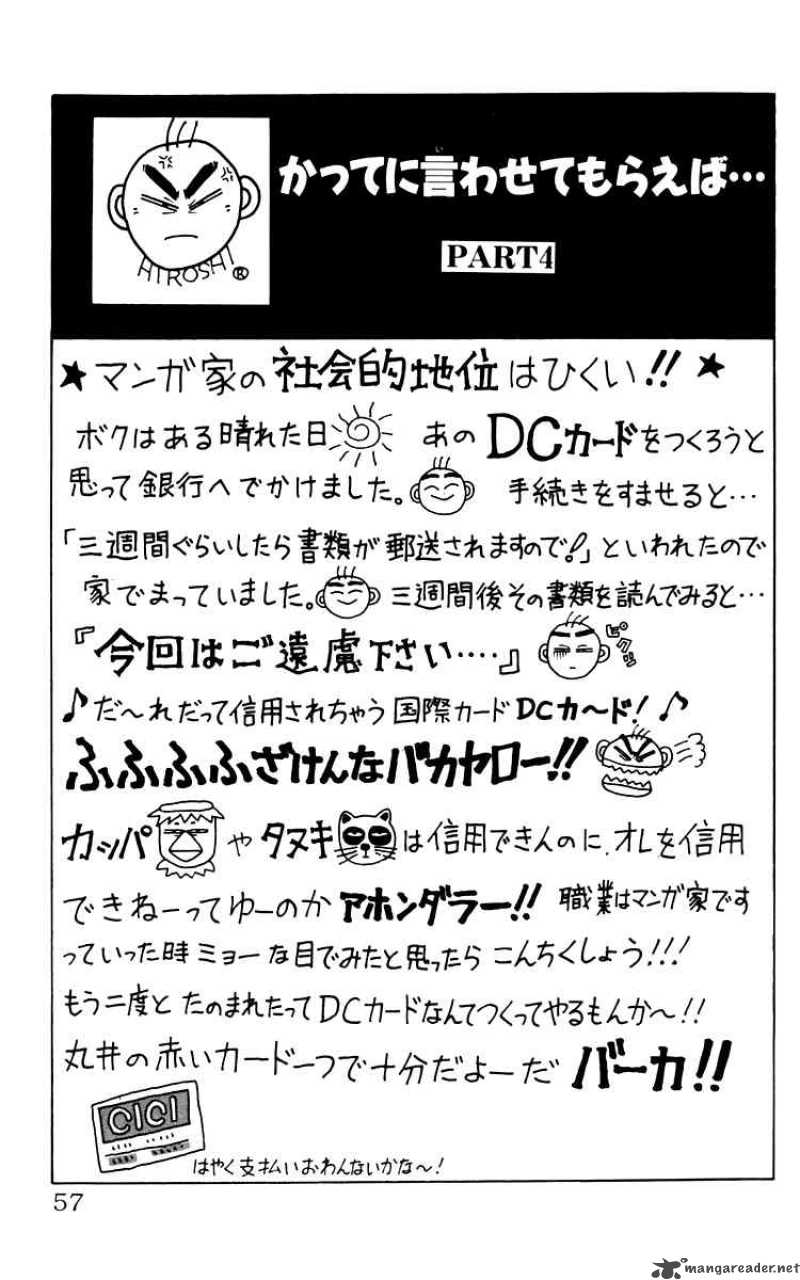 かってに言わせてもらえば…
PART4
HIROSHI®
★マンガ家の社会的地位はひくい!!★
ボクはある晴れた日 あのDCカードをつくろうと
思って銀行へでかけました。 手続きをすませると…
「三週間ぐらいしたら書類が郵送されますので!」といわれたので
家でまっていました。 三週間後その書類を読んでみると…
『今回はご遠慮下さい‥‥』 ピクッ
♪だ〜れだって信用されちゃう国際カードDCカ〜ド!♪
ふふふふざけんなバカヤロー!!
カッパやタヌキは信用できんのに、オレを信用
できねーってゆーのかアホンダラー!! 職業はマンガ家です
っていった時ミョーな目でみたと思ったらこんちくしょう!!!
もう二度とたのまれたってDCカードなんてつくってやるもんか〜!!
丸井の赤いカード一つで十分だよーだバーカ!!
CICI
はやく支払いおわんないかな〜!
57
mangareader.net